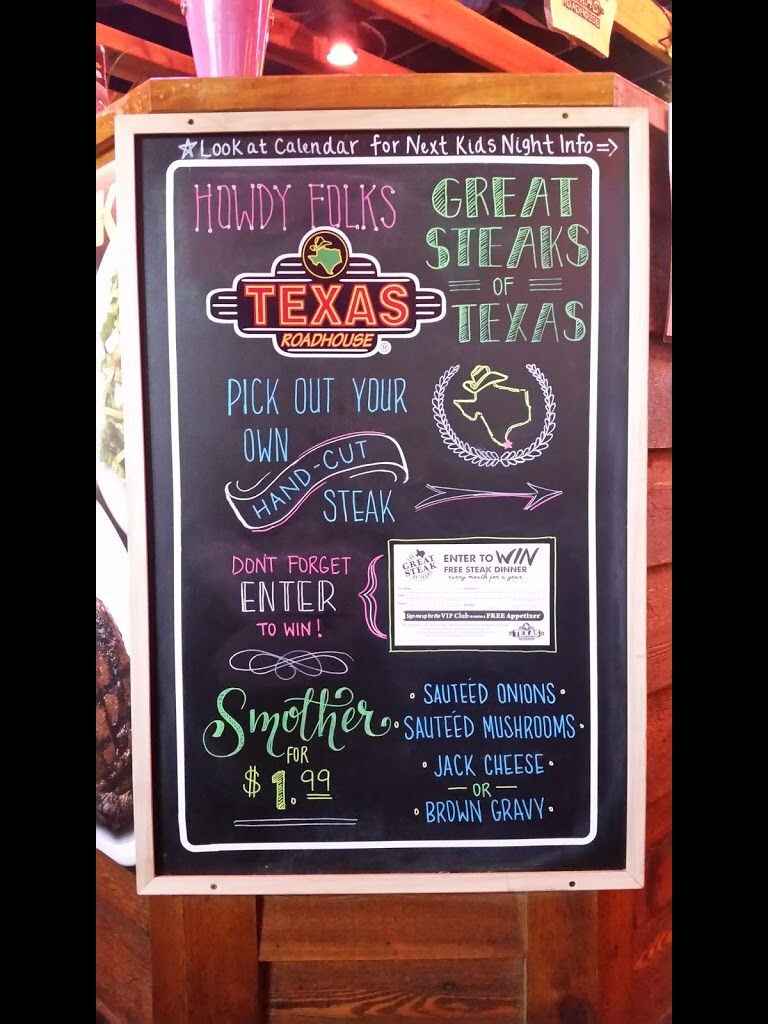 ☆Look at Calendar for Next Kids Night Info⇒
HOWDY FOLKS
TEXAS
ROADHOUSE®
GREAT
STEAKS
OF
TEXAS
PICK OUT YOUR
OWN
HAND-CUT
STEAK
DONT FORGET
ENTER
TO WIN!
GREAT
STEAK
ENTER TO WIN
FREE STEAK DINNER
every month for a year
Sign me up for the VIP Club to receive a FREE Appetizer
TEXAS
Smother
FOR
$1.99
· SAUTEÉD ONIONS ·
· SAUTEÉD MUSHROOMS ·
· JACK CHEESE ·
— OR —
· BROWN GRAVY ·